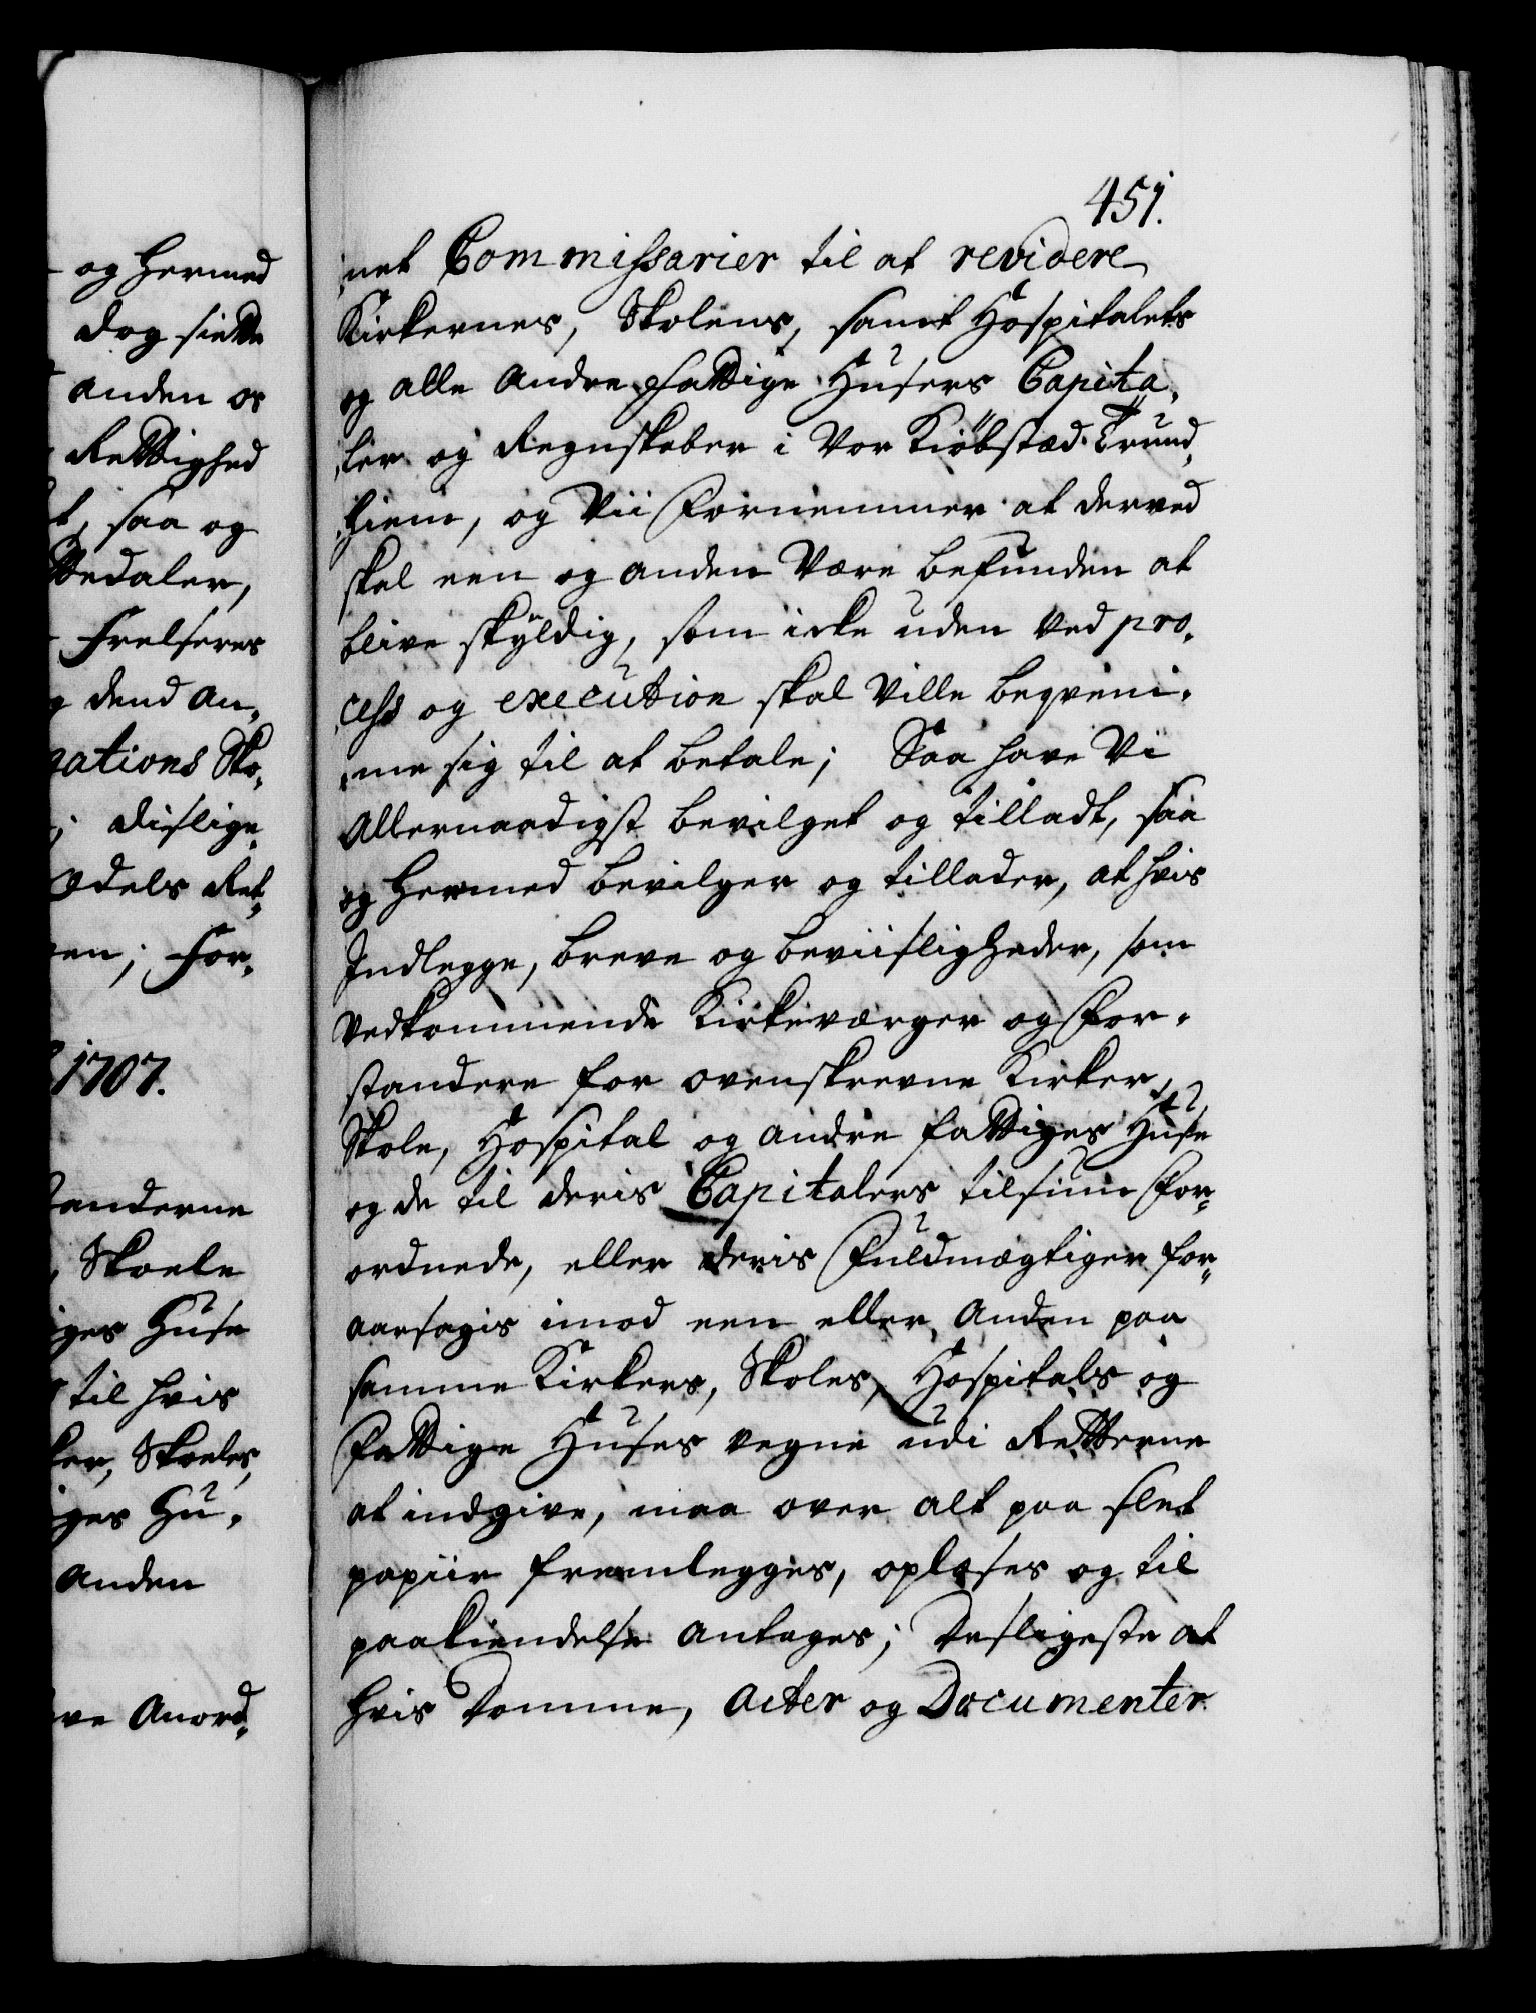 og hermed
dog siette
anden os
Rettighed
t, saa og
tedaler,
Frelseres
g dend An,
nations Sko,
; dislige,
Odels Ret,
en; For,
1707.
tanderne
, Skoele
iges Huse
til hvis
ker, Skoeles,
iges Hu,
anden
ve Anord,
451.
net Commissarier til at revidere
Kirkernes, Skolens, samt Hospitalets
og alle Andre Fattige Husers Capita,
ler og Regnskaber i Vor Kiöbstæd Trund,
hiem, og Vii Fornemmer at derved
skal een og anden Være befunden at
blive skÿldig, som icke uden ved pro,
cess og execution skal Ville beqvem,
me sig til at betale; Saa have Vi
Allernaadigst bevilget og tilladt, saa
og Hermed bevilger og tillader, at hvis
Indlegge, breve og beviisligheder, som
Vedkommende Kirkeværger og For,
standere for ovenskrevne Kirker,
Skole, Hospital og andre fattiges Huse
og de til deris Capitalers tilsiun For,
ordnede, eller deris Fuldmægtiger for,
aarsagis imod een eller Anden paa
samme Kirkers, Skoles, Hospitals og
Fattige Huses vegne udi Retterne
at indgive, maa over alt paa slet
papiir fremlegges, oplæses og til
paakiendelse antages; Desligeste at
hvis Domme, Acter og Documenter